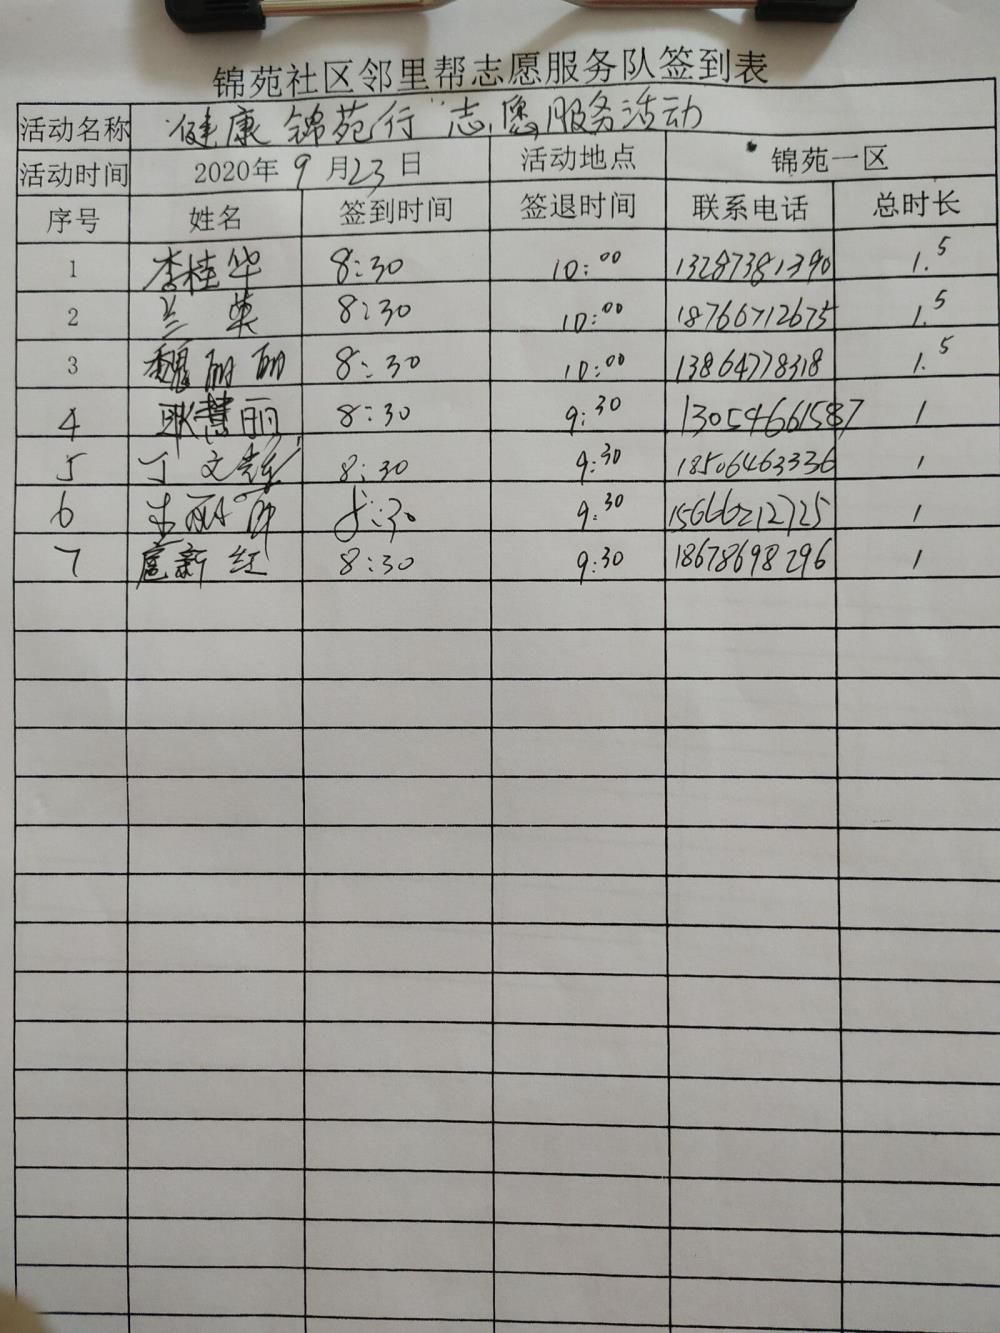 锦苑社区邻里帮志愿服务队签到表
活动名称 "健康锦苑行"志愿服务活动
活动时间 2020年9月23日 活动地点 锦苑一区
序号 姓名 签到时间 签退时间 联系电话 总时长
1 李桂华 8:30 10:00 13287381390 1.5
2 兰英 8:30 10:00 18766712675 1.5
3 魏丽丽 8:30 10:00 13864778318 1.5
4 耿慧丽 8:30 9:30 13054661587 1
5 丁文 8:30 9:30 18506463336 1
6 8:30 9:30 15666212725 1
7 扈新红 8:30 9:30 18678698296 1